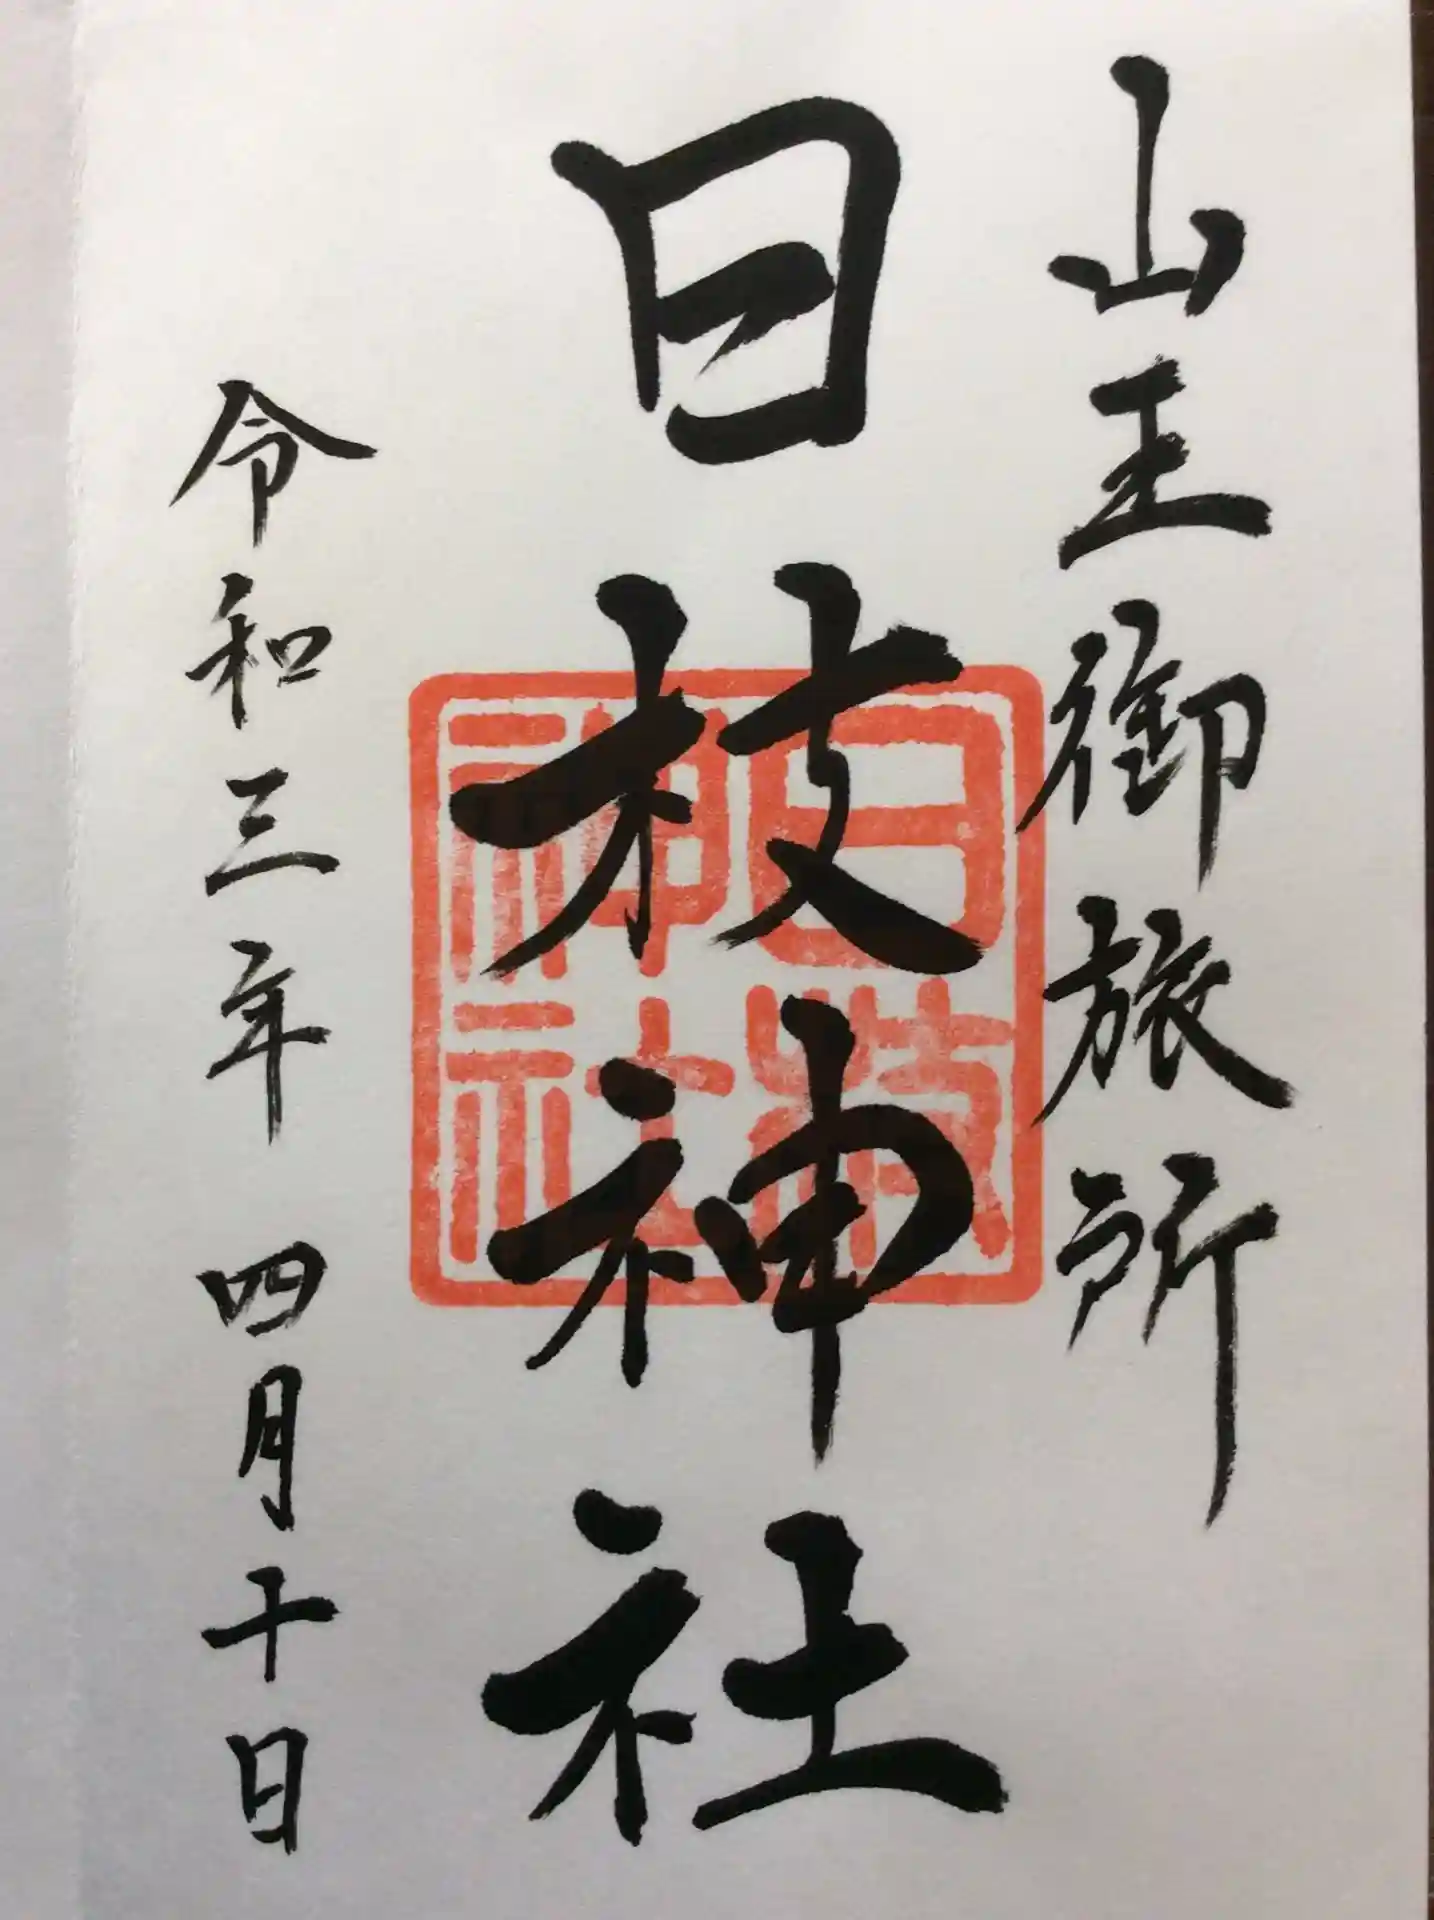 山王御旅所
日枝神社
日枝
神社
令和三年 四月十日